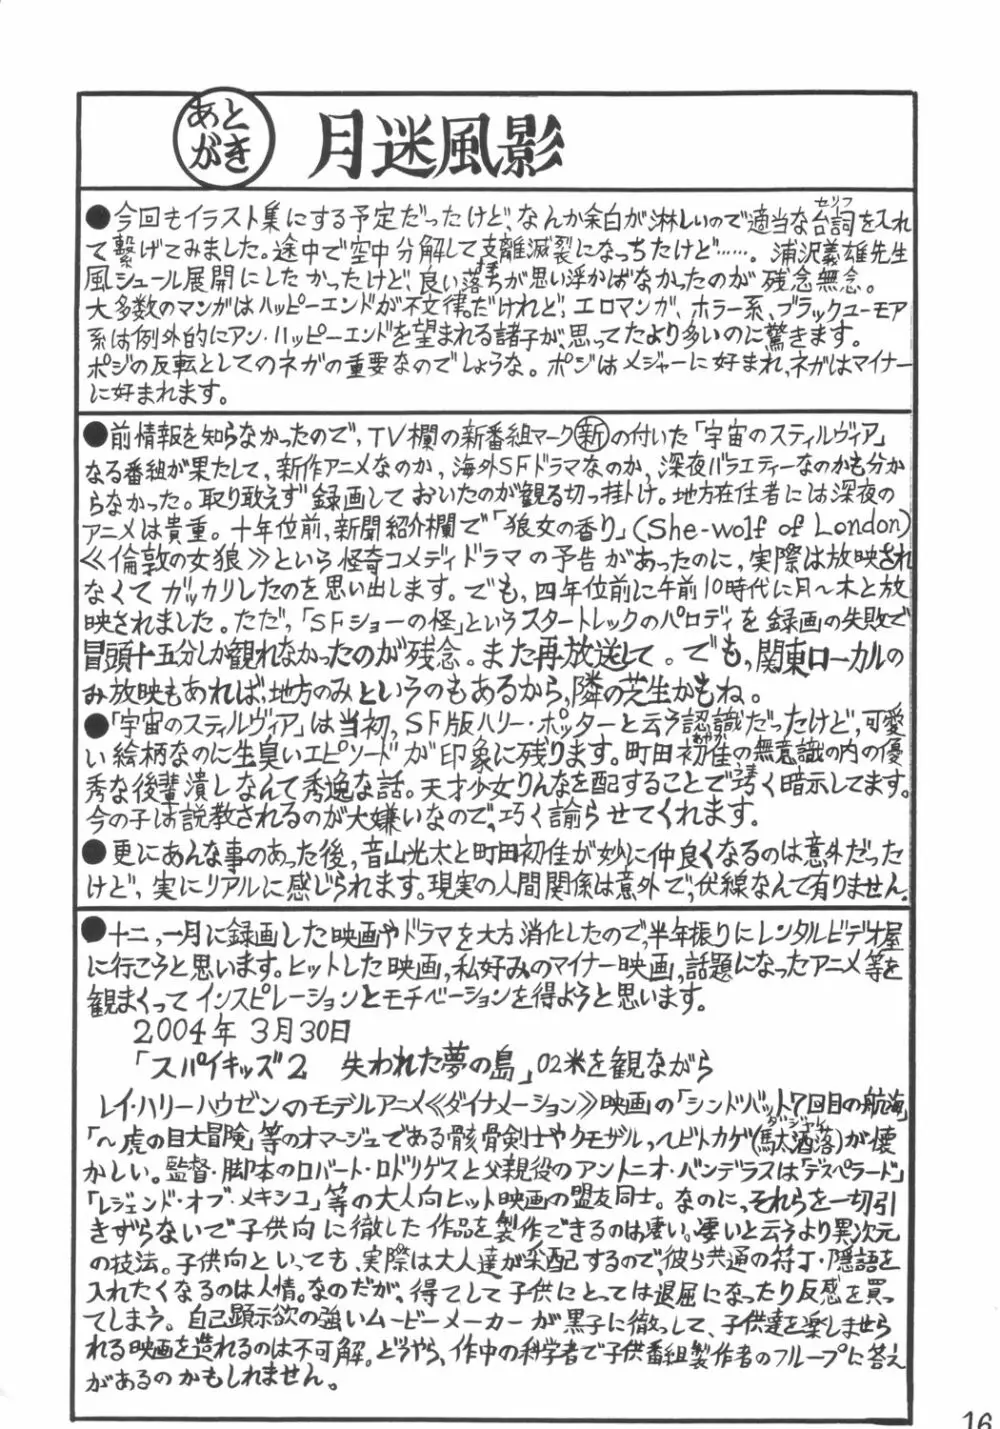 あとがき
月迷風影
●今回もイラスト集にする予定だったけど、なんか余白が淋しいので適当な台詞を入れ
て繋げてみました。途中で空中分解して支離滅裂になっちたけど……。浦沢義雄先生
風シュール展開にしたかったけど、良い落ちが思い浮かばなかったのが残念無念。
大多数のマンガはハッピーエンドが不文律だけれど、エロマンガ、ホラー系、ブラックユーモア
系は例外的にアン・ハッピーエンドを望まれる諸子が、思ってたより多いのに驚きます。
ポジの反転としてのネガの重要なのでしょうな。ポジはメジャーに好まれ、ネガはマイナー
に好まれます。
●前情報を知らなかったので、TV欄の新番組マーク新の付いた「宇宙のスティルヴィア」
なる番組が果たして、新作アニメなのか、海外SFドラマなのか、深夜バラエティーなのかも分か
らなかった。取り敢えず録画しておいたのが観る切っ掛け。地方在住者には深夜の
アニメは貴重。十年位前、新聞紹介欄で「狼女の香り」(She-wolf of London)
≪倫敦の女狼≫という怪奇コメディドラマの予告があったのに、実際は放映され
なくてガッカリしたのを思い出します。でも、四年位前に午前10時代に月〜木と放
映されました。ただ、「SFショーの怪」というスタートレックのパロディを録画の失敗で
冒頭十五分しか観れなかったのが残念。また再放送して。でも、関東ローカルの
み放映もあれば、地方のみというのもあるから、隣の芝生かもね。
●「宇宙のスティルヴィア」は当初、SF版ハリー・ポッターと云う認識だったけど、可愛
い絵柄なのに生臭いエピソードが印象に残ります。町田初佳の無意識の内の優
秀な後輩潰しなんて秀逸な話。天才少女りんなを配することで巧く暗示してます。
今の子は説教されるのが大嫌いなので、巧く諭らせてくれます。
●更にあんな事のあった後、音山光太と町田初佳が妙に仲良くなるのは意外だった
けど、実にリアルに感じられます。現実の人間関係は意外で、伏線なんて有りません。
●十二、一月に録画した映画やドラマを大方消化したので、半年振りにレンタルビデオ屋
に行こうと思います。ヒットした映画、私好みのマイナー映画、話題になったアニメ等を
観まくってインスピレーションとモチベーションを得ようと思います。
2004年3月30日
「スパイキッズ2 失われた夢の島」02米を観ながら
レイ・ハリーハウゼンのモデルアニメ≪ダイナメーション≫映画の「シンドバット7回目の航海」
「〜虎の目大冒険」等のオマージュである骸骨剣士やクモザル、ヘビトカゲ(馬太洒落)が懐
かしい。監督・脚本のロバート・ロドリゲスと父親役のアントニオ・バンデラスは「デスペラード」
「レジェンド・オブ・メキシコ」等の大人向ヒット映画の盟友同士。なのに、それらを一切引
きずらないで子供向に徹した作品を製作できるのは凄い。凄いと云うより異次元
の技法。子供向といっても、実際は大人達が采配するので、彼ら共通の符丁・隠語を
入れたくなるのは人情。なのだが、得てして子供にとっては退屈になったり反感を買っ
てしまう。自己顕示欲の強いムービーメーカーが黒子に徹っして、子供達を楽しませら
れる映画を造れるのは不可解。どうやら、作中の科学者で子供番組製作者のフループに答え
があるのかもしれません。
16